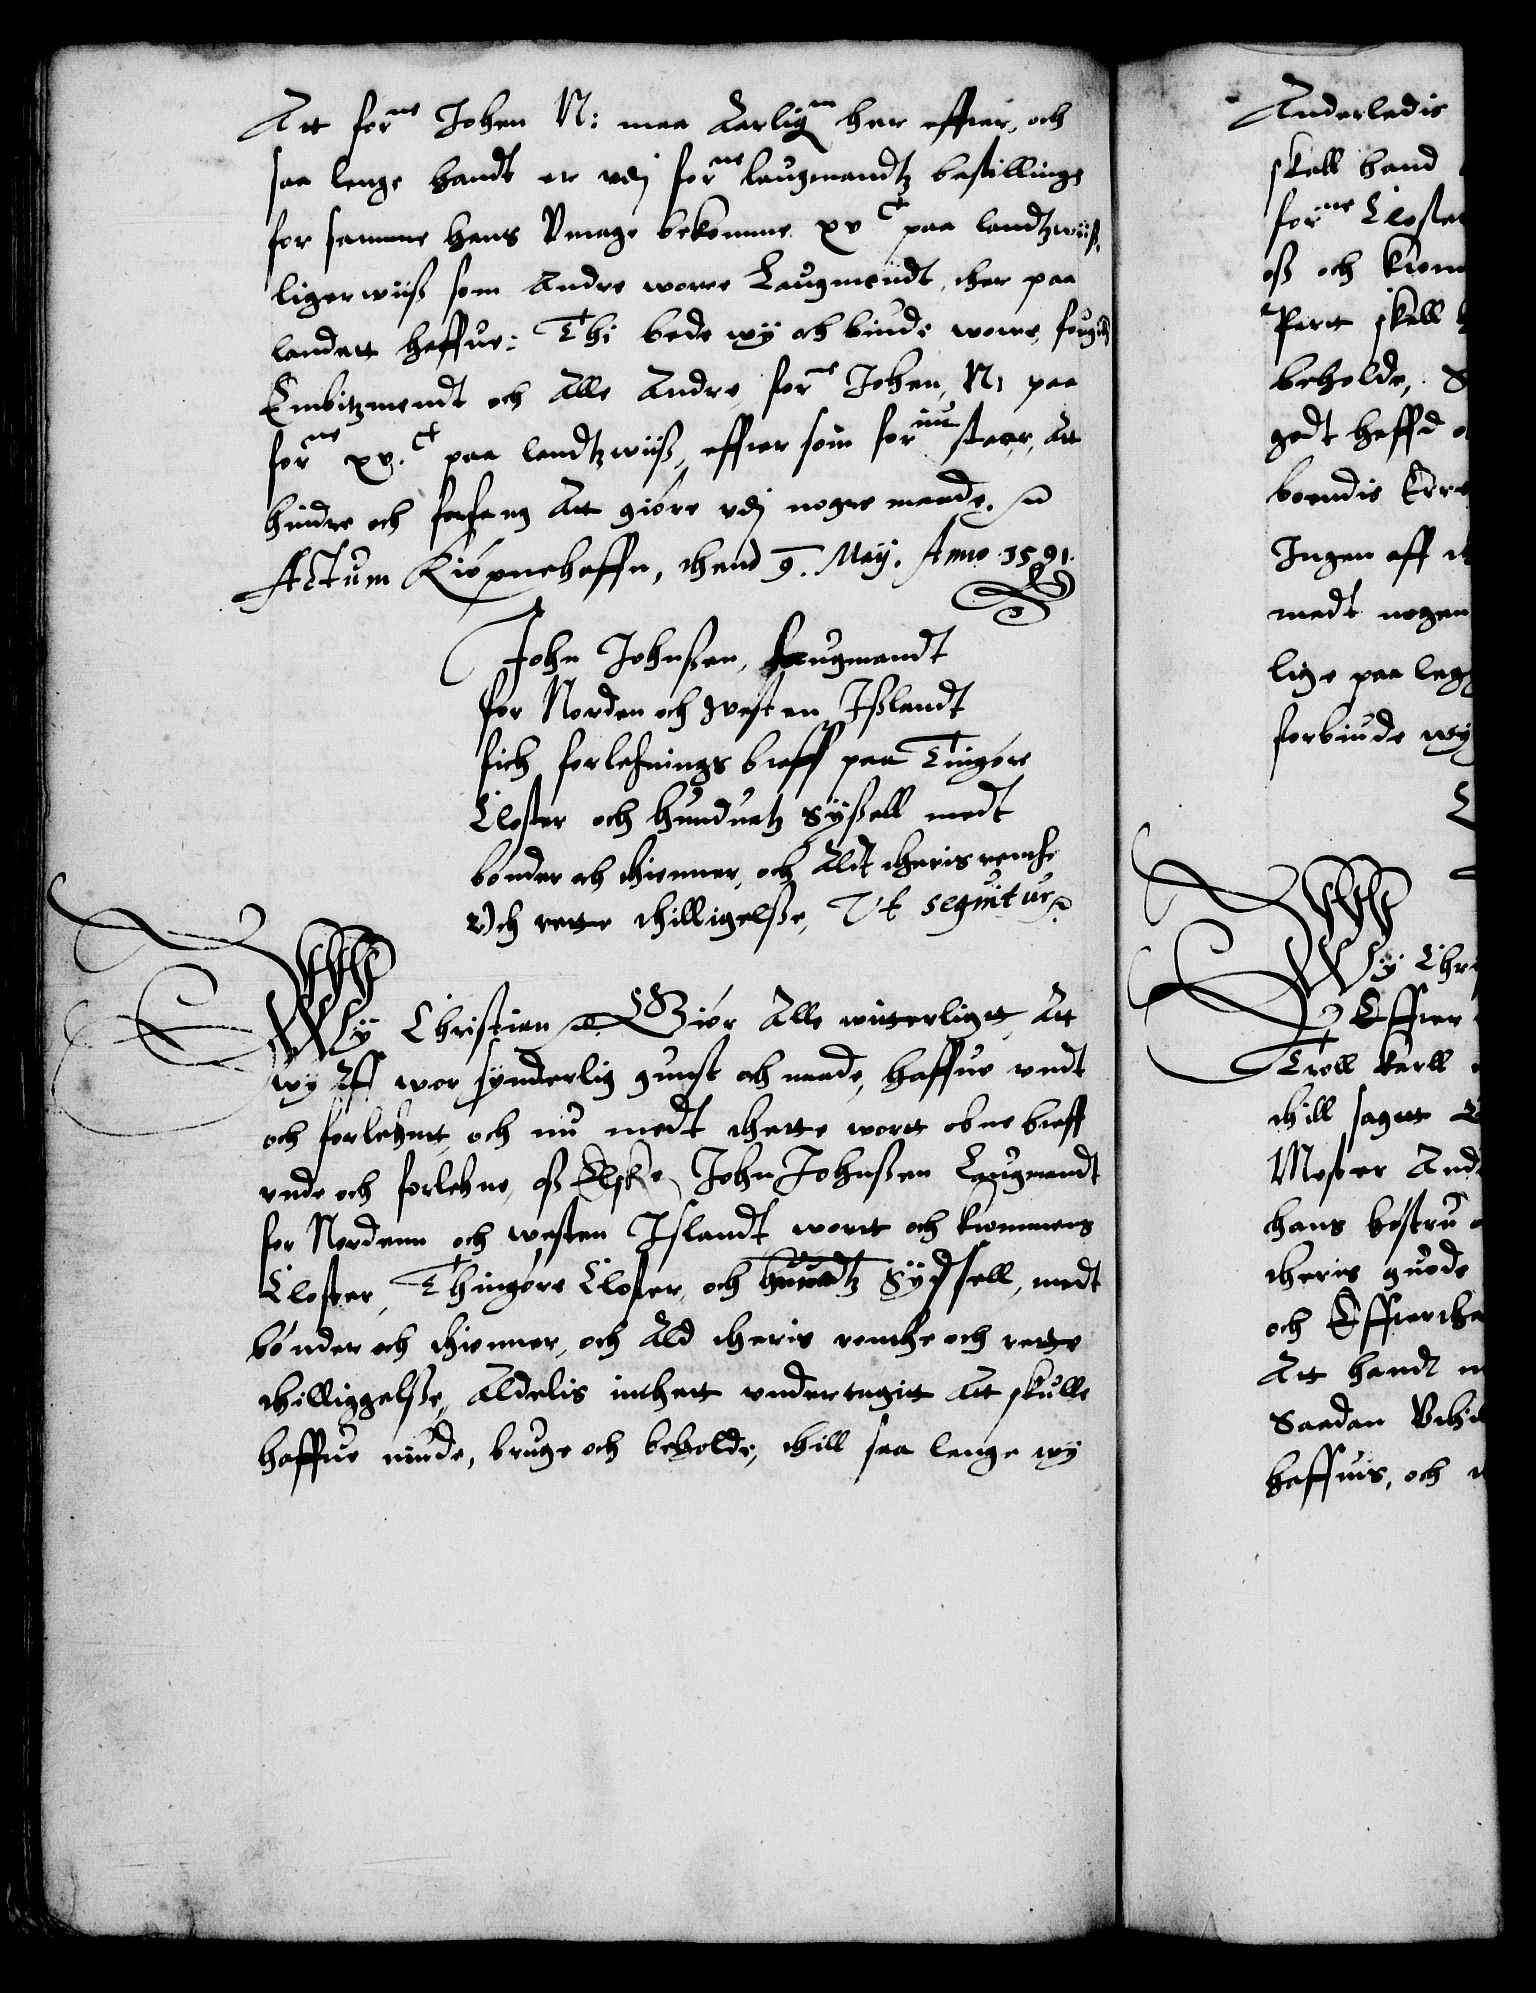 Att for^ne Johen N: maa Aarlig^n her effter, och
saa lenge handt er vdj for^ne laugmandtz bestillinge
for samme hans Vmage bekomme xv c^t paa landtzwiiss,
ligerwiiß som Andre worre Laugmendt, ther paa
landett haffue: Thi bede wy och biude worre, fougitt
Embitzmendt och Alle Andre for^ne Johen, N: paa
for^ne xv. c^t paa landtzwiiß, effter som for^nu staar, Att
hindre och forfang Att giöre vdj nogre maade.
Actum Kiöpnehaffn, thend 9. Maij. Anno 1591.
John Johnßen, laugmandt
for Norden och Westen Ißlandt
fich forlehnings breff paa Tingöre
Closter och hunduatz Syßell medt
bönder och thienner, och Aldt theris renthe
Och rette thilligelße, Vt sequitur
Wy Christian Giör Alle witterligtt, Att
wy Aff wor synderlig gunst och naade, haffue vndt
och forlehntt, och nu medt thette wortt obne breff
vnde och forlehne, oß Elske John Johnßen Laugmandt
for Nordenn och westen Islandt, wortt och kronnens
Closter, Thingöre Closter, och huuadtz Sydssell, medt
bönder och thienner, och Ald theris renthe och rette
thilliggelße, Aldelis inthett vndertagitt Att skulle
haffue niude, bruge och beholde, thill saa lenge wy
Anderledis
skall hand
for^ne Closter
oß och kron
Partt skall
beholde,
godt heffd
boendis
Ingen aff
medt nogen
lige paa legg
forbiude wy
Wy Chr
Effter
Troll karll
thill sagtt
Mester And
hans höstru
theris guode
och Effterthe
Att handt
Saadan
haffuis, och